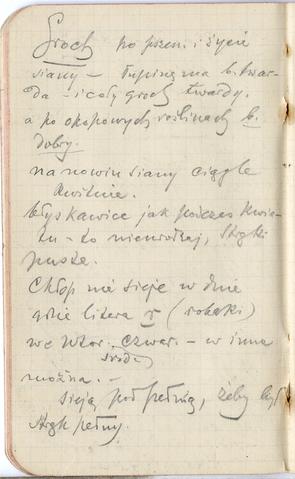 Groch po pszen. i życie
siany – łupinę ma b. twar-
da – i cały groch twardy.
a po okopowych roślinach b.
dobry.
na nowiu siany ciągle
kwitnie.
błyskawice jak podczas kwia-
tu – to nieurodzaj, strąki
puste.
Chłop nie sieje w dnie
gdzie litera r (robaki)
we wtor. czwar. – w inne
środę
można. –
sieją pod pełnią, żeby był
strąk pełny.